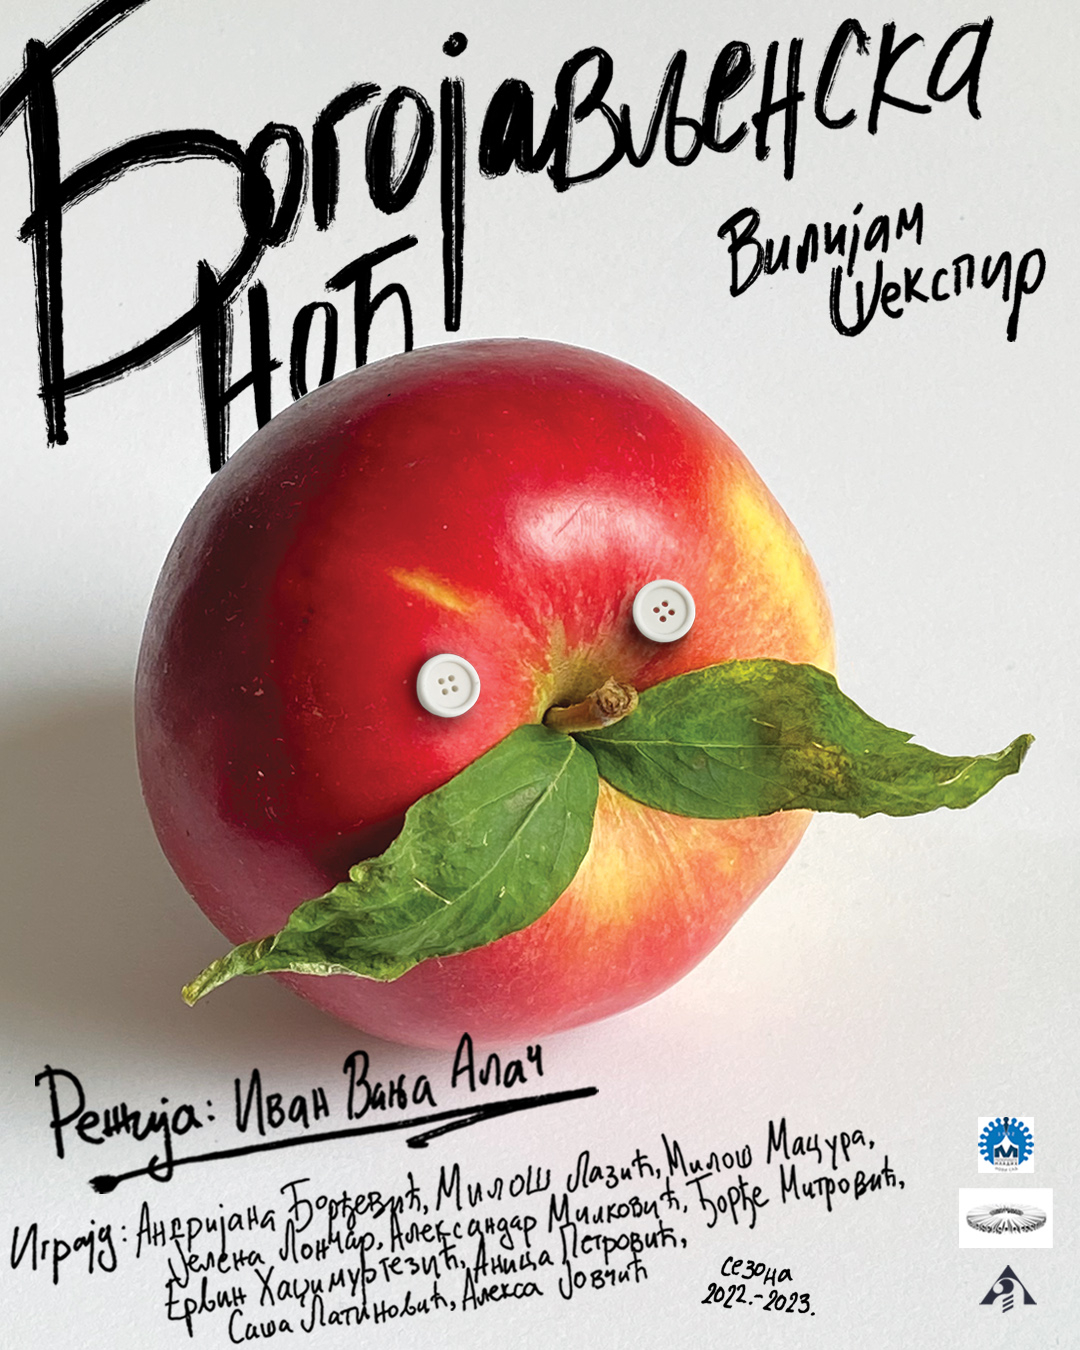 Богојављенска
ноћ
Вилијам
Шекспир
Режија: Иван Вања Алач
Играју: Андријана Ђорђевић, Милош Лазић, Милош Мацура,
Јелена Лончар, Александар Милковић, Ђорђе Митровић,
Ервин Хаџимуртезић, Аница Петровић,
Саша Латиновић, Алекса Јовчић
сезона
2022.-2023.